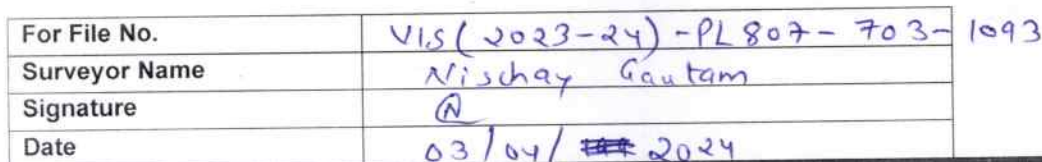 For File No. VIS(2023-24)-PL807-703-1093
Surveyor Name Nischay Gautam
Signature N
Date 03/04/ 2024